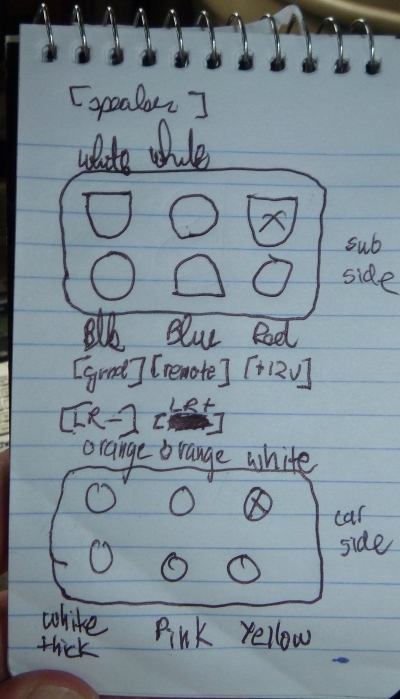 [speaker]
white white
X
sub
side
Blk Blue Red
[grnd] [remote] [+12V]
[LR-] [LR+]
orange orange white
X
car
side
white
thick Pink Yellow